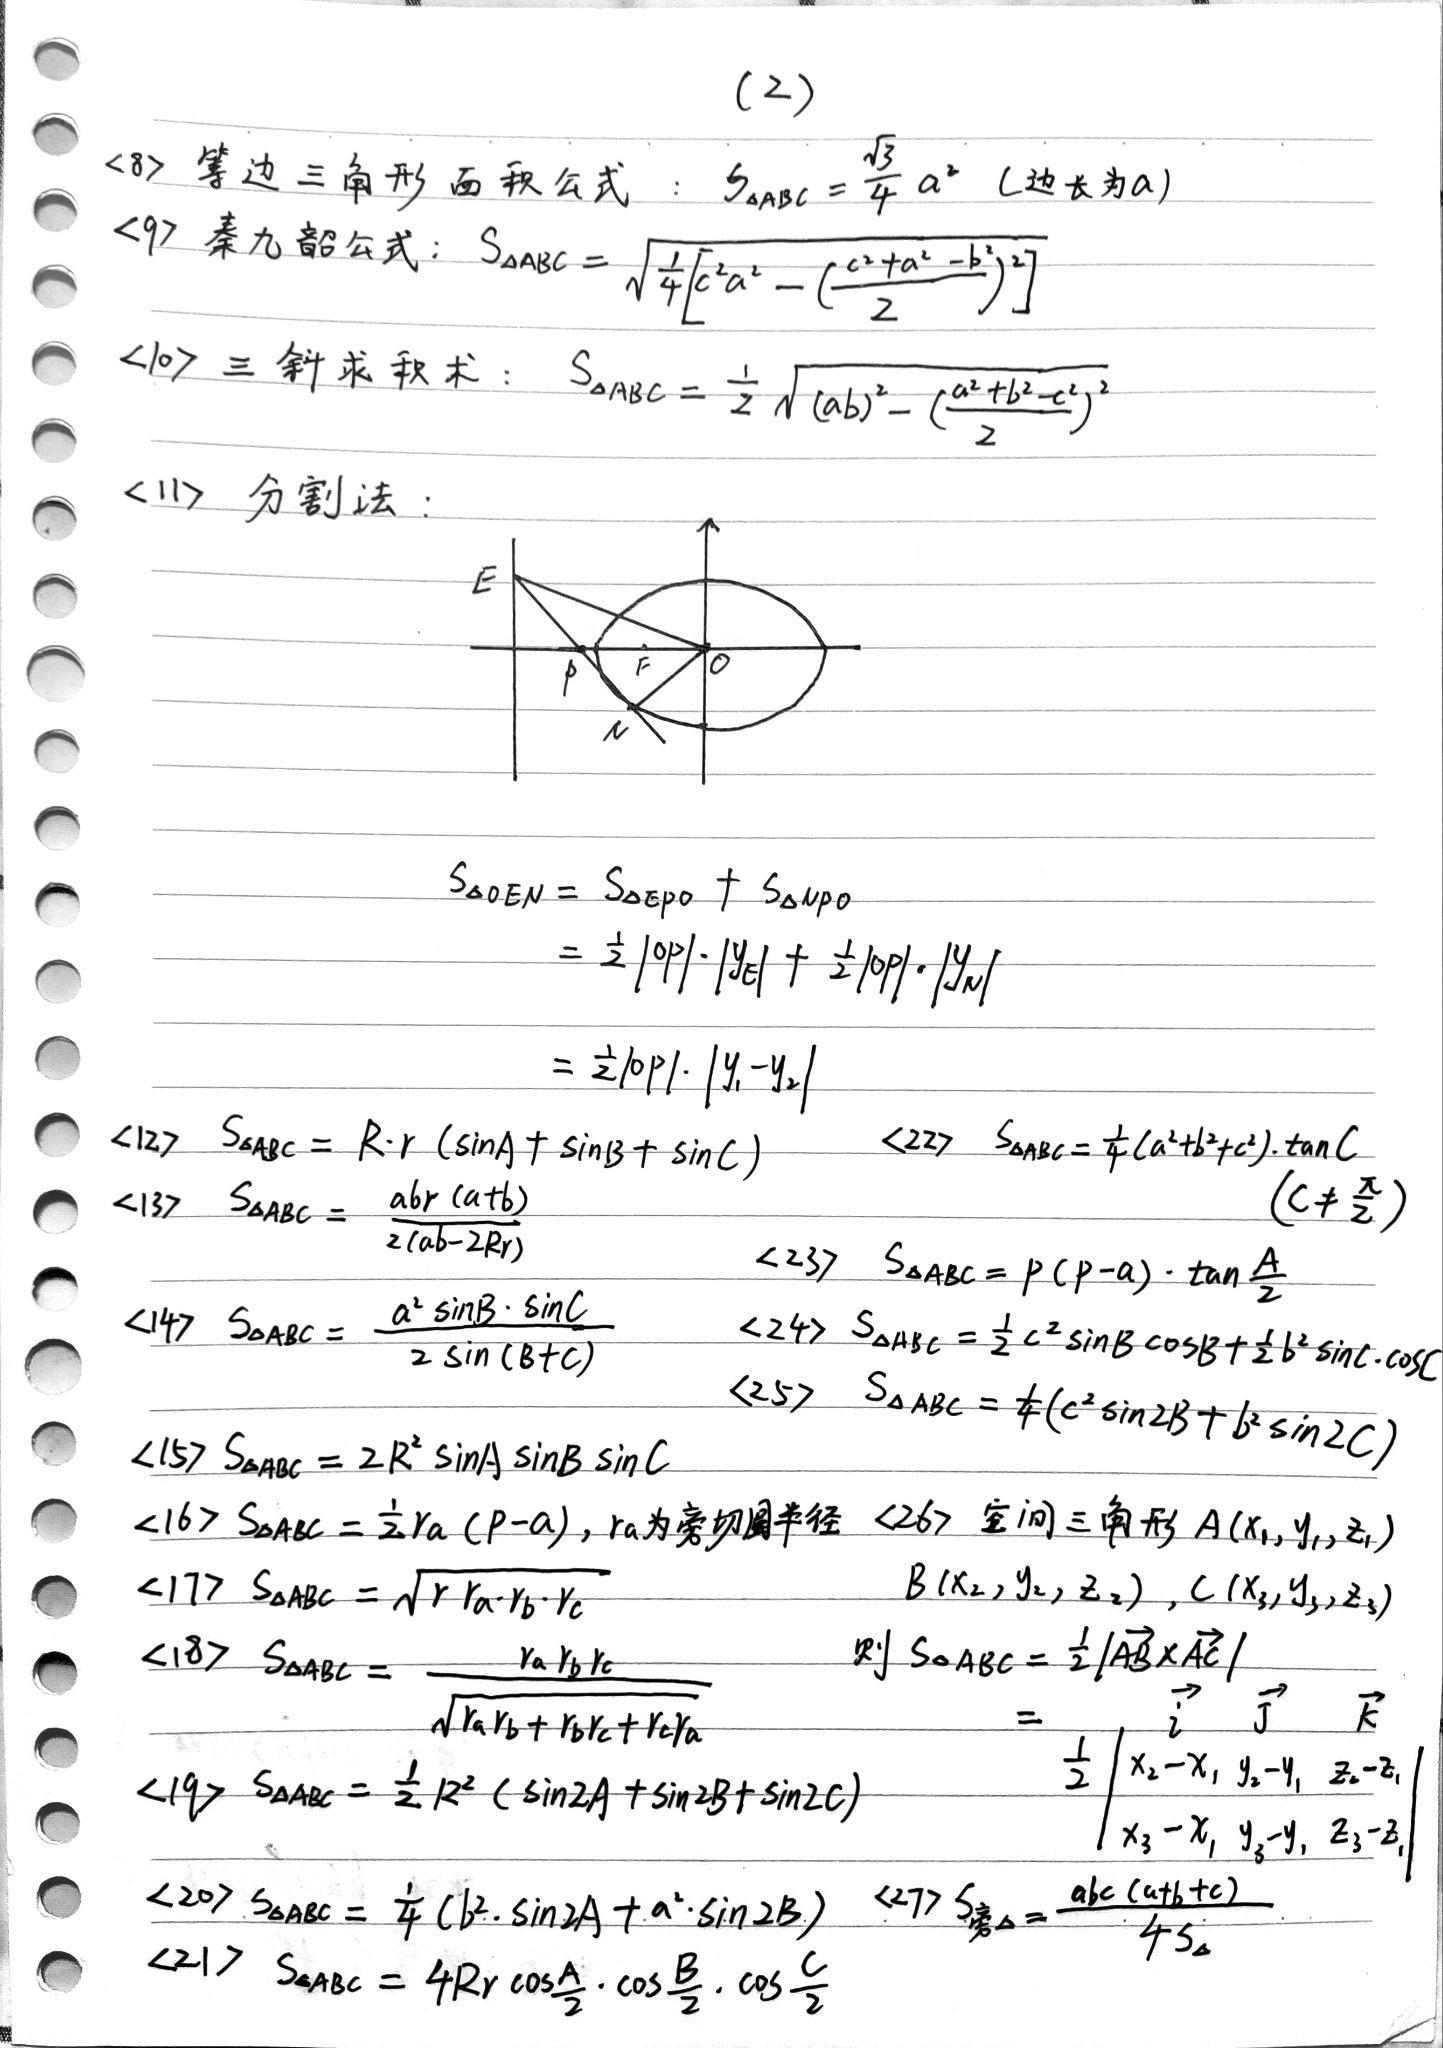 (2)
<8> 等边三角形面积公式 : S△ABC = √3/4 a² (边长为a)
<9> 秦九韶公式: S△ABC = √(1/4[c²a² - ((c²+a²-b²)/2)²])
<10> 三斜求积术 : S△ABC = 1/2 √((ab)² - ((a²+b²-c²)/2)²)
<11> 分割法 :
E
P F O
N
S△OEN = S△EPO + S△NPO
= 1/2|OP|·|yE| + 1/2|OP|·|yN|
= 1/2|OP|·|y₁-y₂|
<12> S△ABC = R·r (sinA + sinB + sinC)
<13> S△ABC = abr(a+b)/2(ab-2Rr)
<14> S△ABC = a² sinB·sinC/2 sin(B+C)
<15> S△ABC = 2R² sinA sinB sinC
<16> S△ABC = 1/2 ra (p-a), ra为旁切圆半径
<17> S△ABC = √(r ra·rb·rc)
<18> S△ABC = ra rb rc/√(ra rb + rb rc + rc ra)
<19> S△ABC = 1/2 R² (sin2A + sin2B + sin2C)
<20> S△ABC = 1/4 (b²·sin2A + a²·sin2B)
<21> S△ABC = 4Rr cos A/2 · cos B/2 · cos C/2
<22> S△ABC = 1/4 (a²+b²+c²)·tanC
(C ≠ π/2)
<23> S△ABC = p(p-a)·tan A/2
<24> S△ABC = 1/2 c² sinB cosB + 1/2 b² sinC·cosC
<25> S△ABC = 1/4 (c² sin2B + b² sin2C)
<26> 空间三角形 A(x₁, y₁, z₁)
B(x₂, y₂, z₂), C(x₃, y₃, z₃)
则 S△ABC = 1/2|AB→ × AC→|
= i→ j→ k→
1/2 | x₂-x₁ y₂-y₁ z₂-z₁ |
x₃-x₁ y₃-y₁ z₃-z₁
<27> S旁△ = abc(a+b+c)/4S△